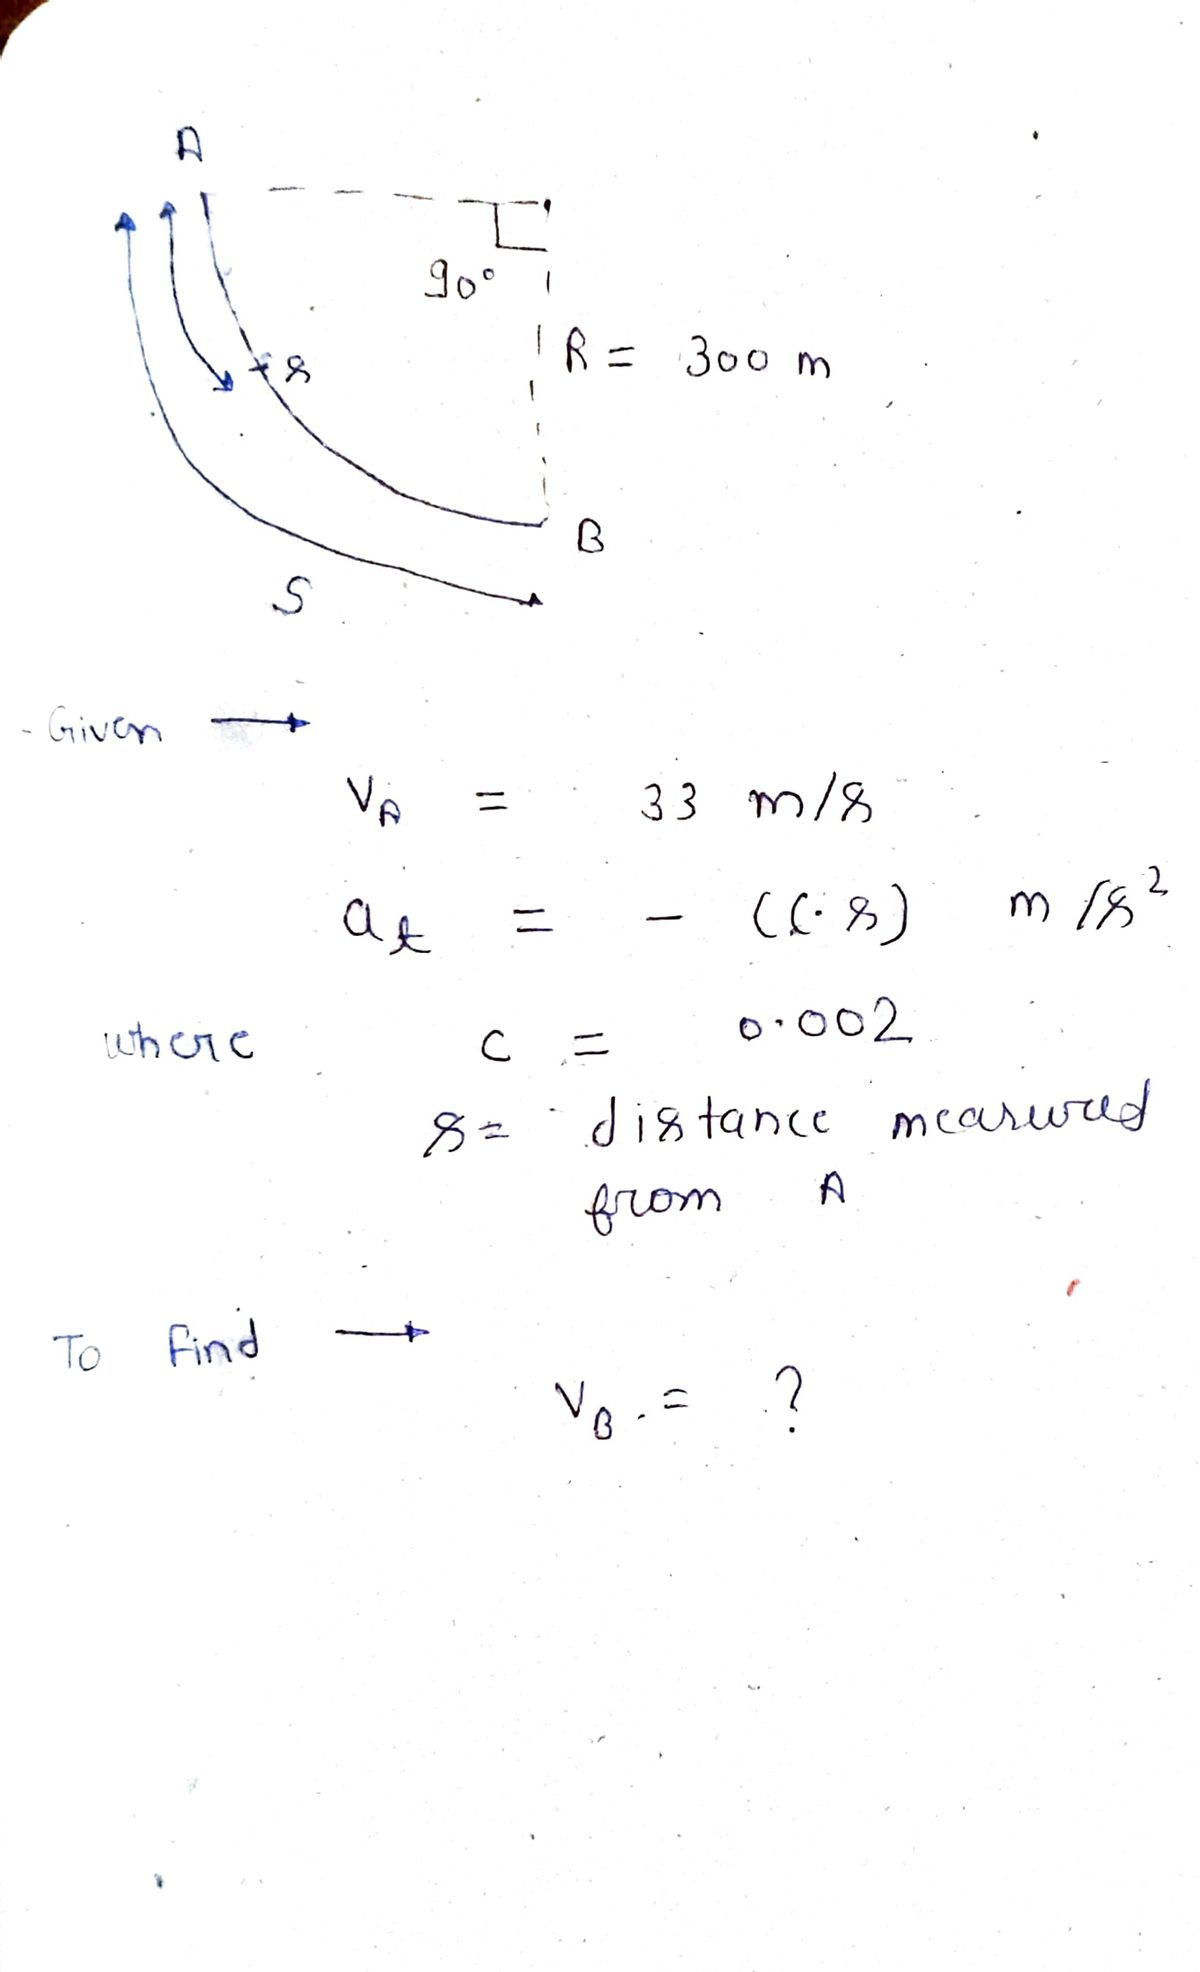 A
90°
R = 300 m
s
B
S
Given →
V_A = 33 m/s
a_t = - (C·s) m/s²
where c = 0.002
s = distance measured
from A
To find →
V_B = ?